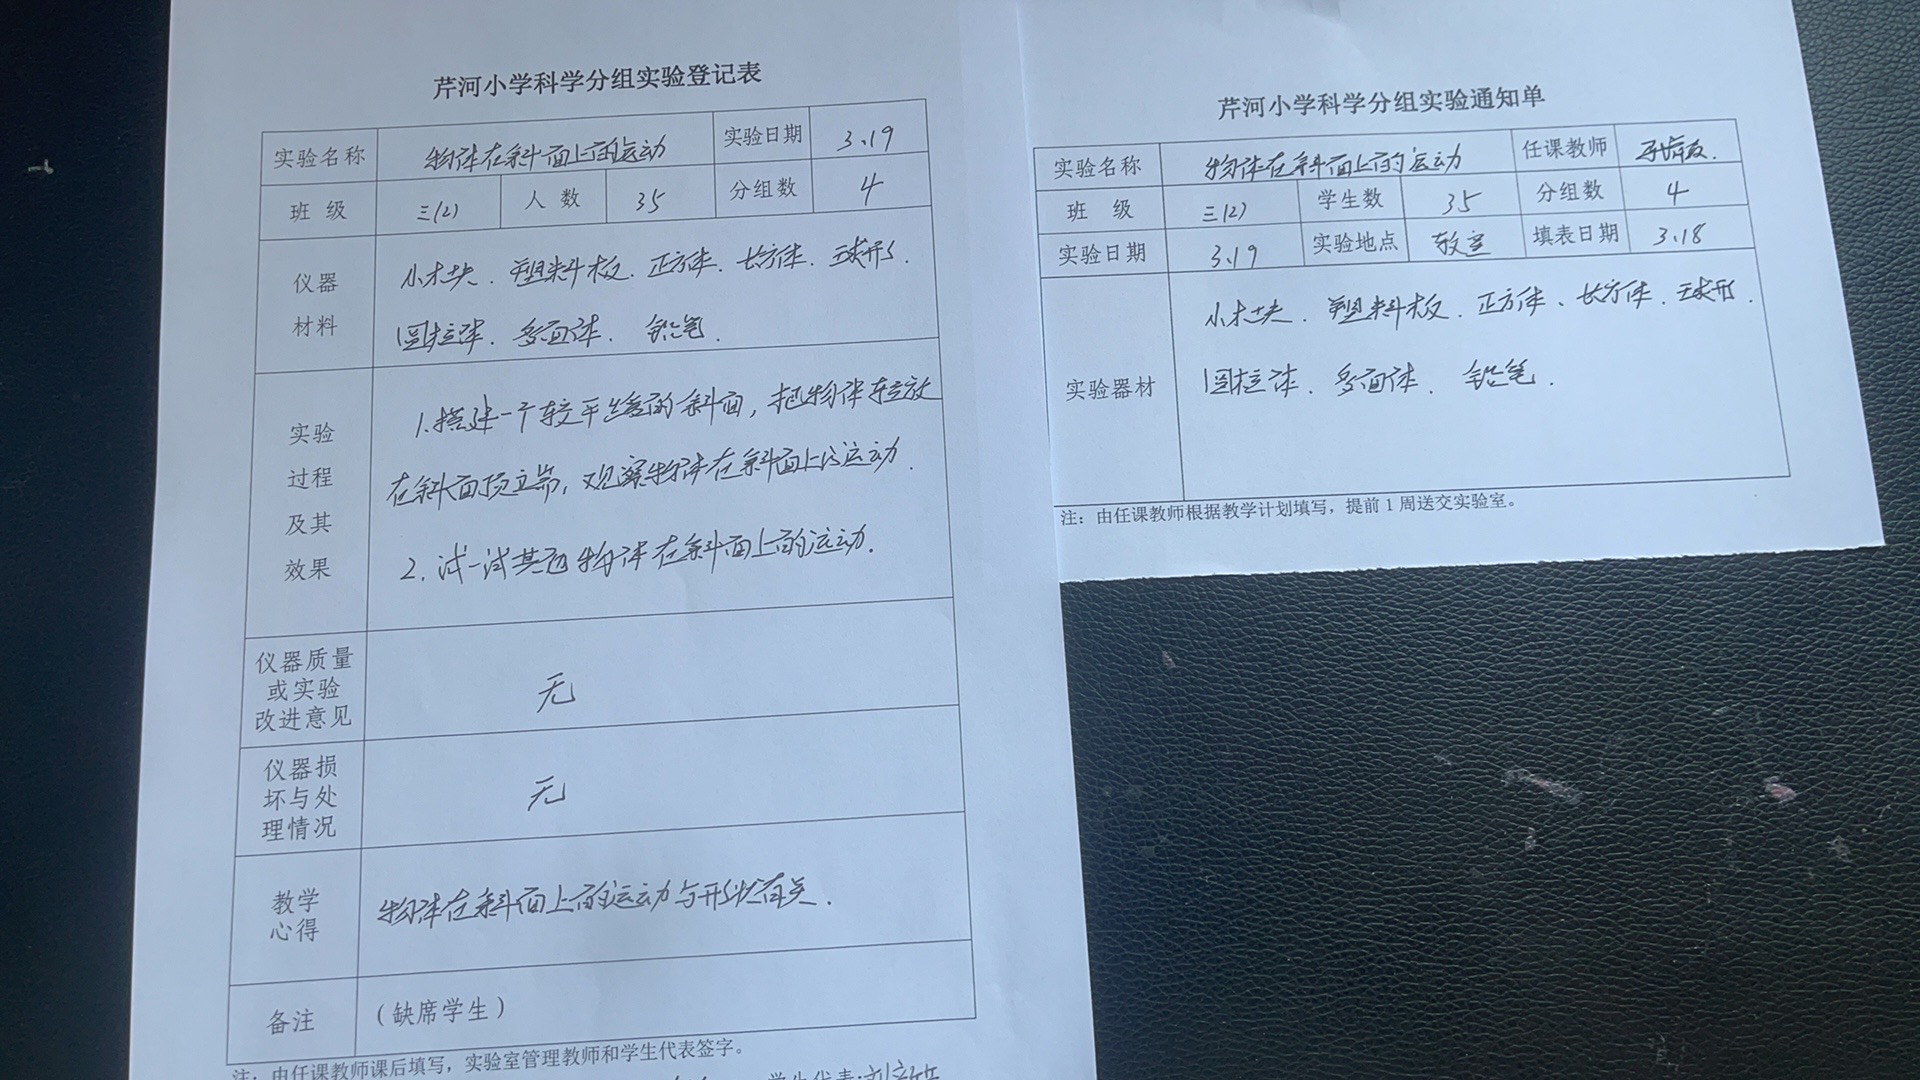 芹河小学科学分组实验登记表
实验名称 物体在斜面上的运动 实验日期 3.19
班 级 三(2) 人 数 35 分组数 4
仪器 小木块. 塑料板. 正方体. 长方体. 球形.
材料 圆柱体. 多面体. 铅笔.
实验 1.搭建一个较平缓的斜面,把物体轻放
过程 在斜面顶端,观察物体在斜面上的运动.
及其
效果 2.试一试其他物体在斜面上的运动.
仪器质量
或实验 无
改进意见
仪器损
坏与处 无
理情况
教学 物体在斜面上的运动与形状有关.
心得
备注 (缺席学生)
注:由任课教师课后填写,实验室管理教师和学生代表签字。
学生代表:
芹河小学科学分组实验通知单
实验名称 物体在斜面上的运动 任课教师
班 级 三(2) 学生数 35 分组数 4
实验日期 3.19 实验地点 教室 填表日期 3.18
小木块. 塑料板. 正方体、长方体. 球形.
实验器材 圆柱体. 多面体. 铅笔.
注:由任课教师根据教学计划填写,提前1周送交实验室。